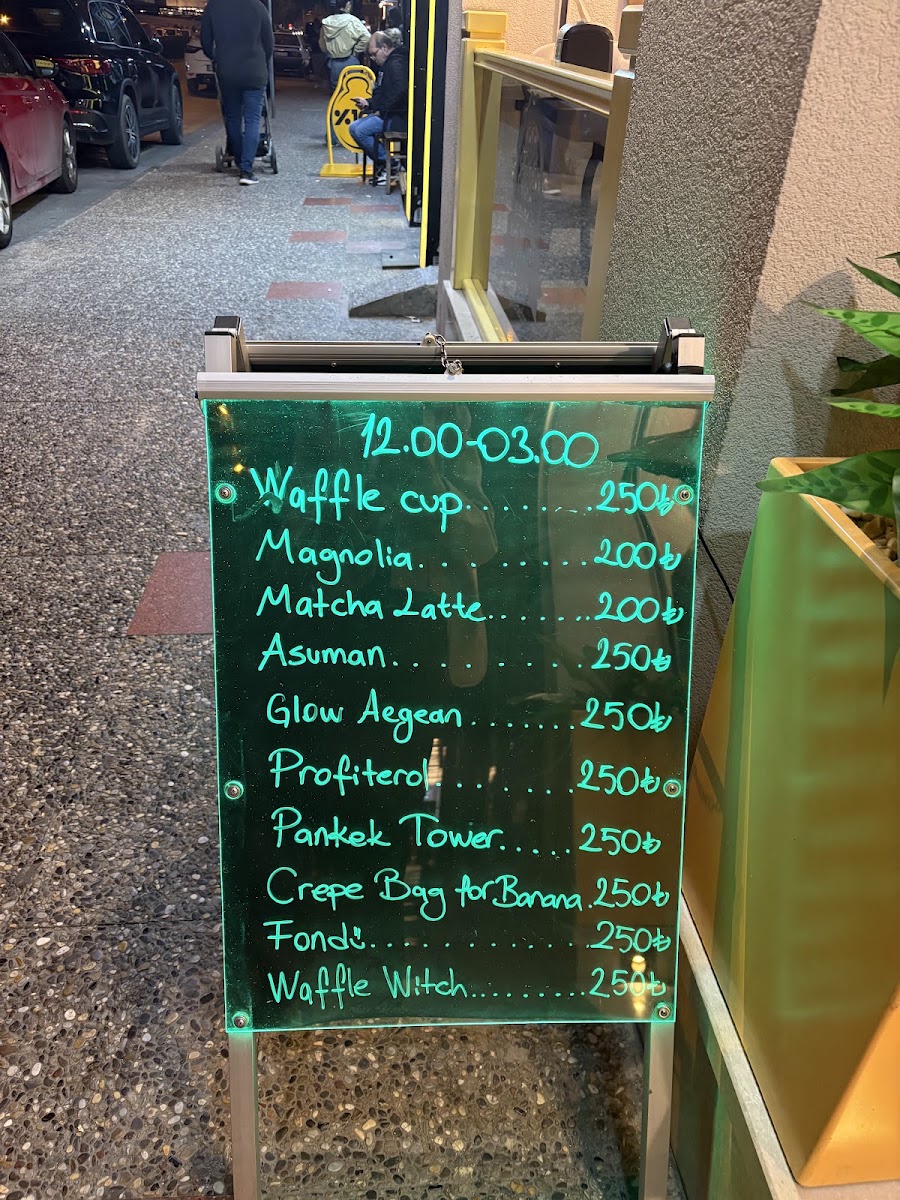 %1
12.00-03.00
Waffle cup........250₺
Magnolia.........200₺
Matcha Latte.......200₺
Asuman.........250₺
Glow Aegean.......250₺
Profiterol........250₺
Pankek Tower.....250₺
Crepe Bag for Banana.250₺
Fondü.............250₺
Waffle Witch.........250₺